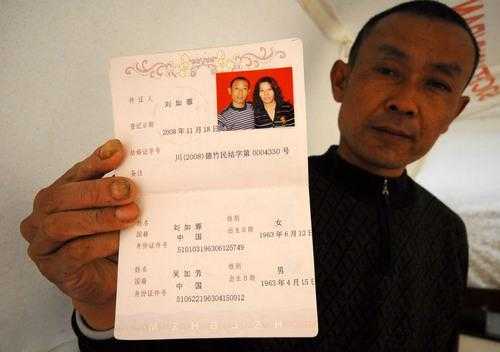 持证人 刘如雅
登记日期 2008年11月18日
结婚证字号 川(2008)德竹民结字第0004330号
备注
姓名 刘如雅 性别 女
国籍 中国 出生日期 1963年6月12日
身份证件号 510103196306125749
姓名 吴加芳 性别 男
国籍 中国 出生日期 1963年4月15日
身份证件号 510622196304150912
MZHBJZH